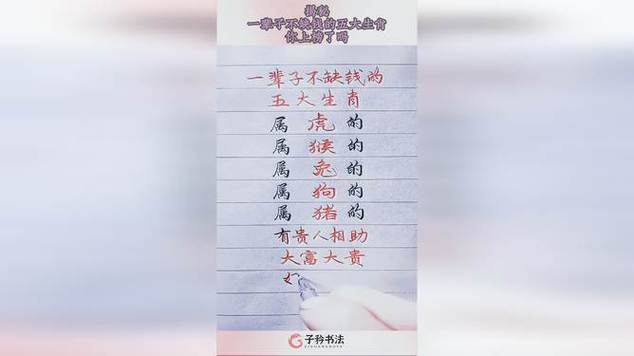 揭秘
一辈子不缺钱的五大生肖
你上榜了吗
一辈子不缺钱的
五大生肖
属虎的
属猴的
属兔的
属狗的
属猪的
有贵人相助
大富大贵
子矜书法